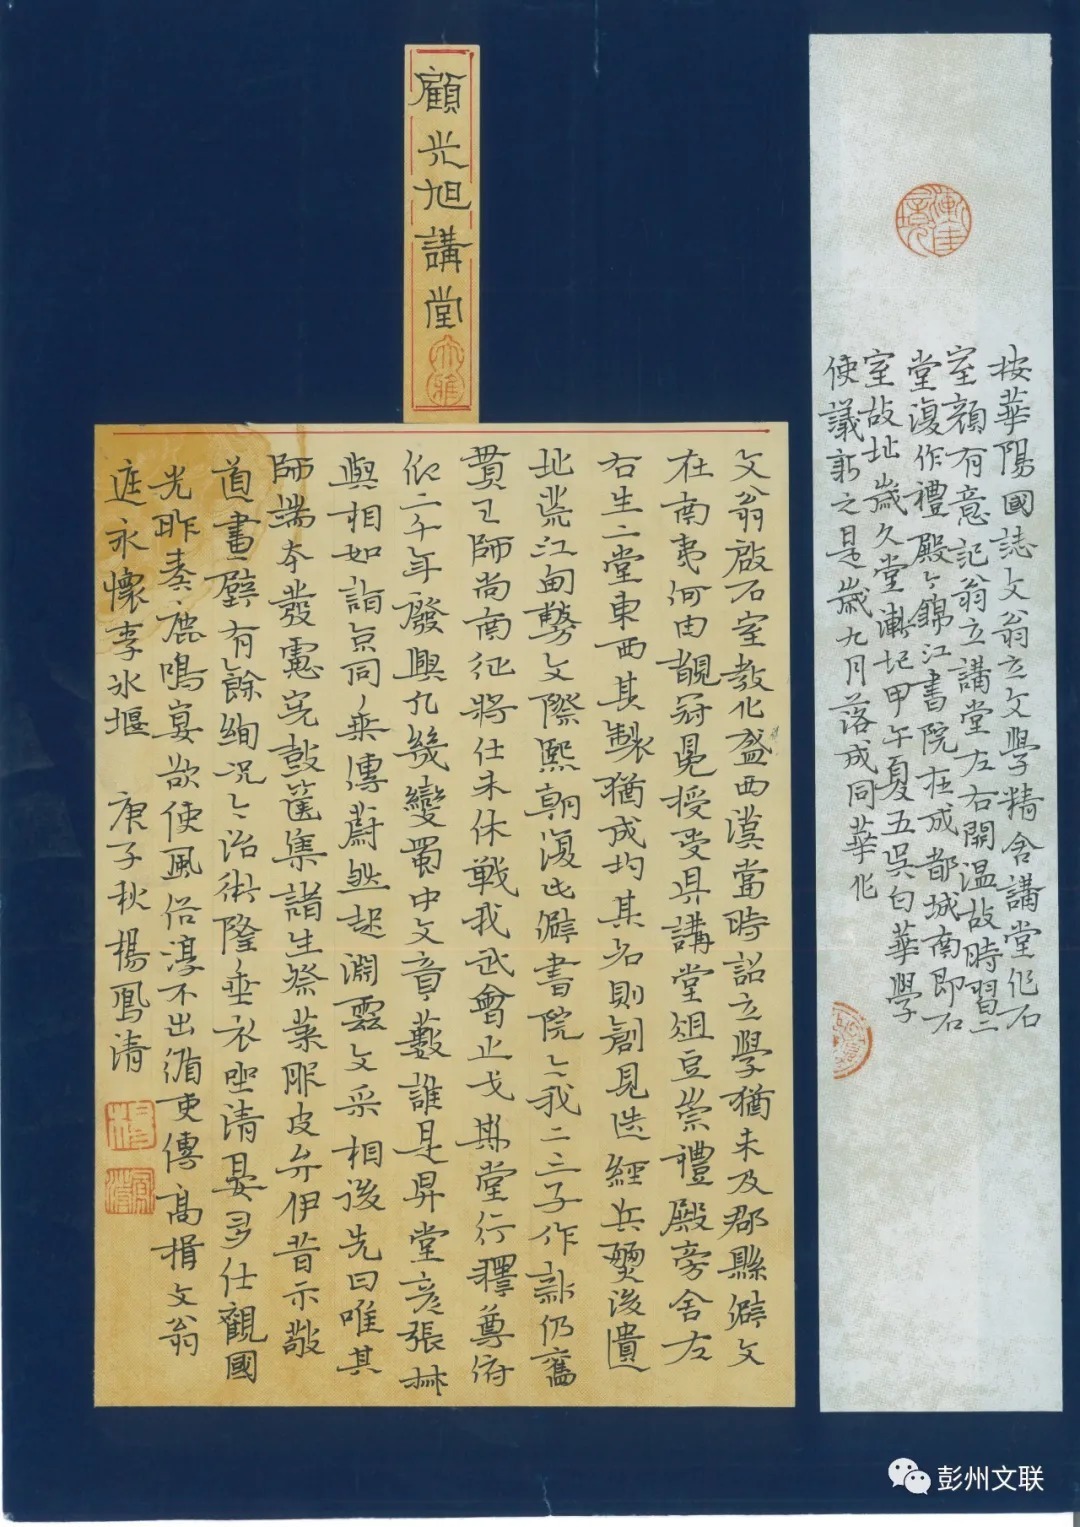 顧光旭講堂
按華陽國誌文翁立文學精舍講堂作石
室顏有意記翁立講堂左右開温故時習二
堂復作禮殿々錦江書院在成都城南即石
室故址歲久堂漸圮甲午夏五呉白華學
使議新之是歲九月落成同華
文翁啟石室教化盛西漢當時詔立學猶未及郡縣僻文
在南夷何由覩冠冕授受具講堂俎豆崇禮殿旁舍左
右生二堂東西其製猶成均其名則創見迭經兵燹後遺
址荒江甸勢文際熙朝復此僻書院々我二三子作新仍舊
貫王師尚南征將仕未休戰我武會止戈斯堂行釋尊府
仰二千年廢興凡幾變蜀中文章藪誰是昇堂彦張林
與相如詣京同乘傳蔚然起淵雲文采相後先曰唯其
師端本發慮憲鼓篋集諸生祭菜服皮弁伊昔示敬
道畫壁有餘絢況々治術隆垂衣坐清晏多仕觀國
光昨奏鹿鳴宴欲使風俗淳不出循吏傳高揖文翁
遊永懷李冰堰 庚子秋楊鳳清
彭州文联